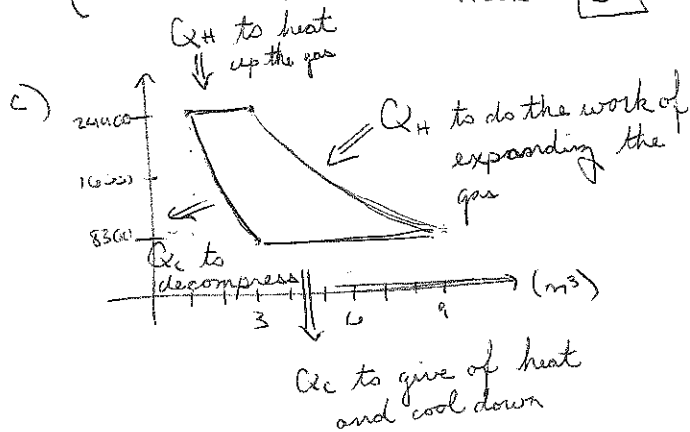 Q_H to heat
up the gas
c)
Q_H to do the work of
expanding the
gas
Q_c to
decompress
3 6 9 (m³)
Q_c to give of heat
and cool down